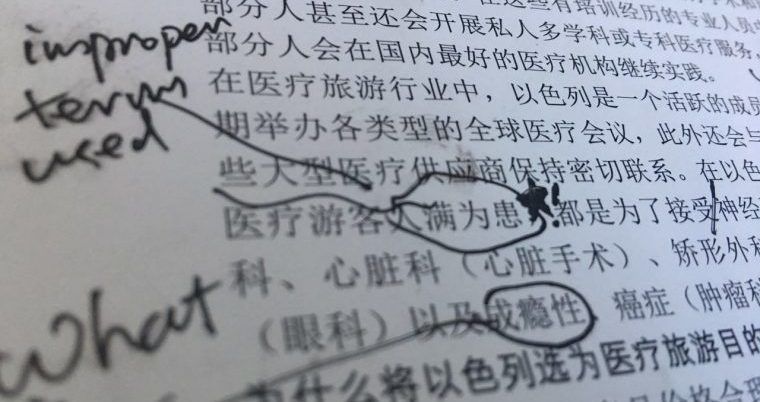 improper
term
used
What
在这些有培训经历的专业人员
部分人甚至还会开展私人多学科或专科医疗服务,
部分人会在国内最好的医疗机构继续实践。
在医疗旅游行业中，以色列是一个活跃的成员
期举办各类型的全球医疗会议，此外还会与
些大型医疗供应商保持密切联系。在以色
医疗游客人满为患 都是为了接受神经
科、心脏科（心脏手术）、矫形外科
（眼科）以及成瘾性 癌症（肿瘤科
为什么将以色列选为医疗旅游目的
价格合理